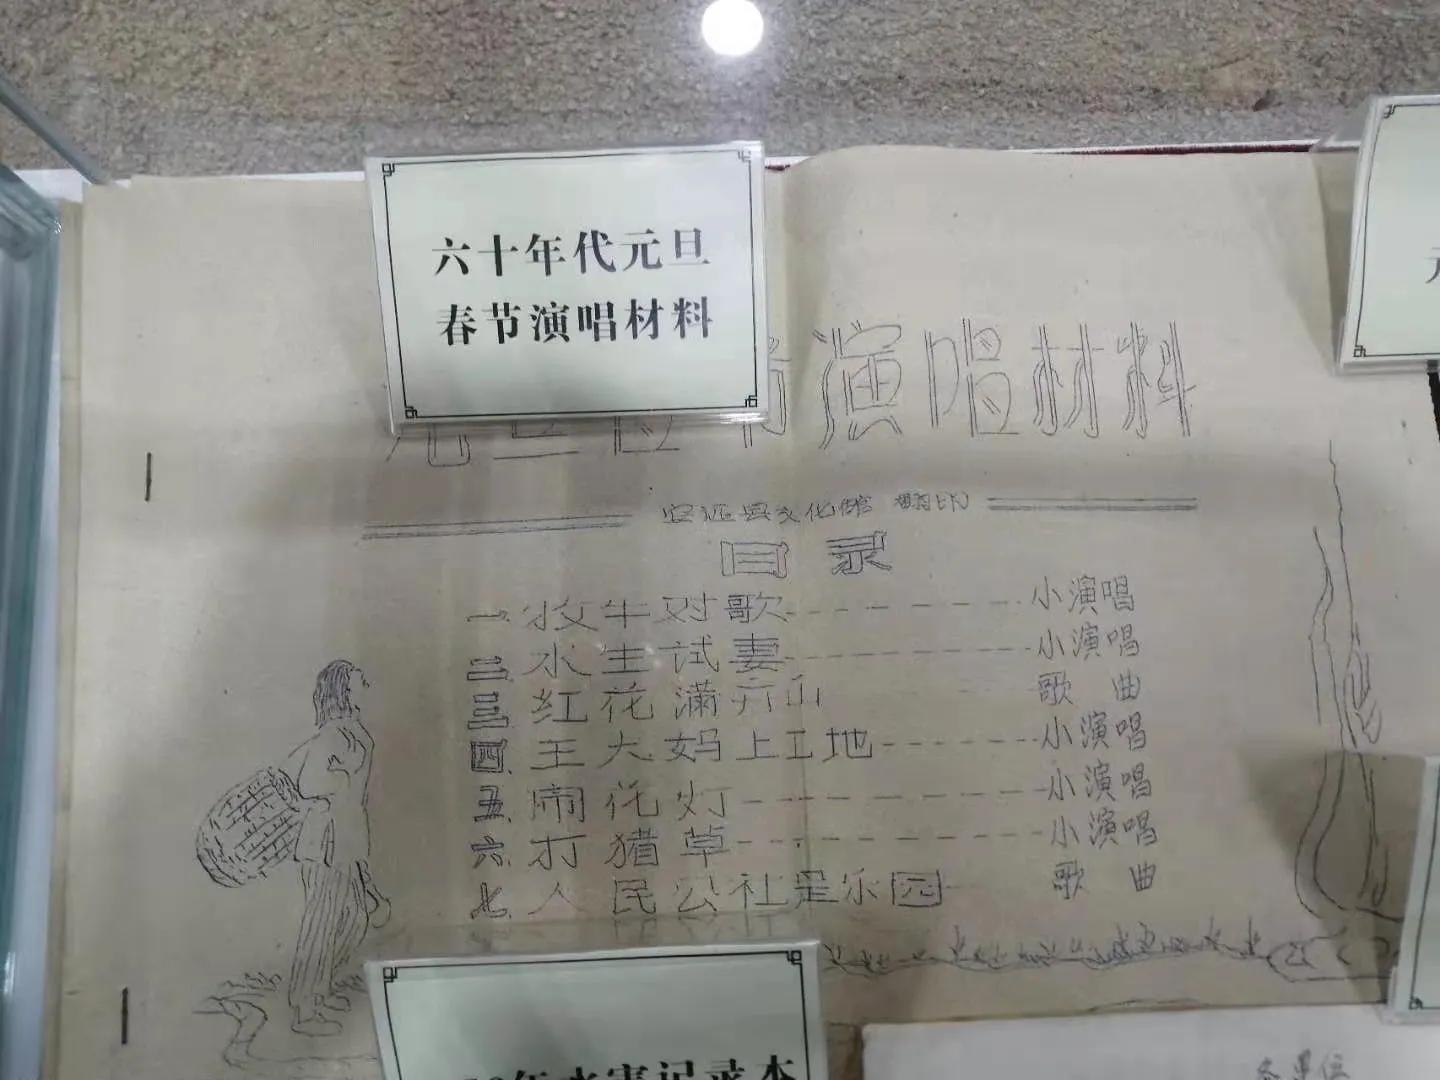 六十年代元旦
春节演唱材料
元旦春节演唱材料
安远县文化馆 翻印
目录
一、牧牛对歌 小演唱
二、水生试妻 小演唱
三、红花满山 歌曲
四、王大妈上工地 小演唱
五、闹花灯 小演唱
六、打猪草 小演唱
七、人民公社是乐园 歌曲
年水害记录本
各单位